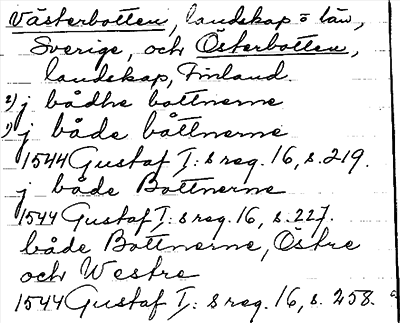 Västerbotten, landskap o län,
Sverige, och Österbotten,
landskap, Finland.
2) j bådhe bottnerne
1) j både båttnerne
1544 Gustaf I: s reg. 16, s. 219.
j både Bottnerne
1544 Gustaf I: s reg. 16, s. 227.
både Bottnerne, Östre
och Westre
1544 Gustaf I: s reg. 16, s. 258.